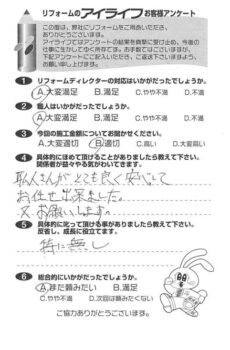 リフォームのアイライフお客様アンケート
この度は、弊社にリフォームをご用命いただき、
ありがとうございます。
アイライフではアンケートの結果を真摯に受け止め、今後の
仕事に生かしてゆく所存です。お手数ではございますが、
下記アンケートにご記入いただき、ご返送下さいますよう、
お願い申し上げます。
1 リフォームディレクターの対応はいかがだったでしょうか。
A.大変満足 B.満足 C.やや不満 D.不満
2 職人はいかがだったでしょうか。
A.大変満足 B.満足 C.やや不満 D.不満
3 今回の施工金額についてお聞かせください。
A.大変適切 B.適切 C.高い D.大変高い
4 具体的にほめて頂けることがありましたら教えて下さい。
関係者が益々やる気がわいてきます。
職人さんがとても良く安心して
お任せ出来ました。
又お願いします。
5 具体的に叱って頂ける事がありましたら教えて下さい。
反省し、成長に役立てます。
特に無し
6 総合的にいかがだったでしょうか。
A.また頼みたい B.満足
C.やや不満 D.次回は頼みたくない
ご協力ありがとうございます。